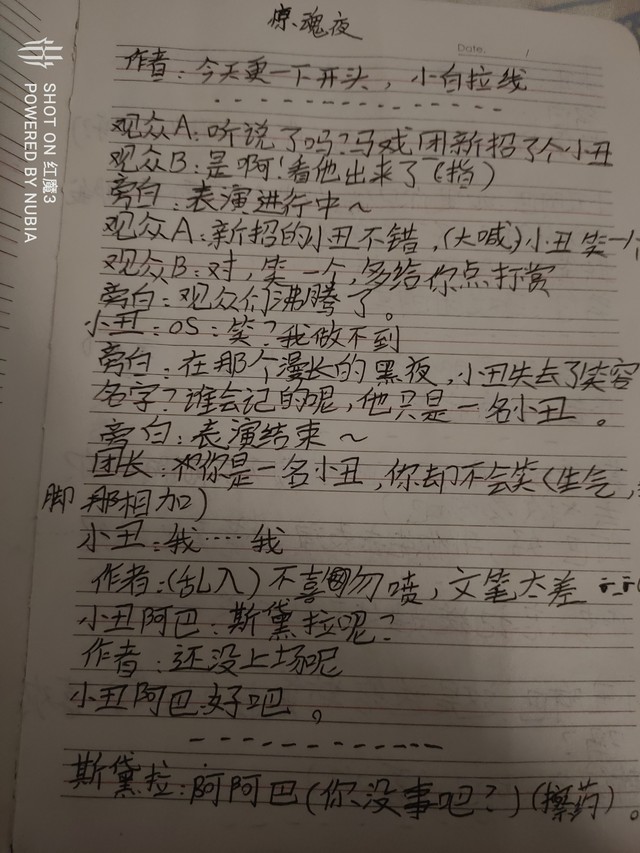 惊魂夜
Date.
作者:今天更一下开头,小白拉线
观众A:听说了吗?马戏团新招了个小丑
观众B:是啊!看他出来了(指)
旁白:表演进行中~
观众A:新招的小丑不错,(大喊)小丑笑一个
观众B:对,笑一个,多给你点打赏
旁白:观众们沸腾了。
小丑:OS:笑?我做不到
旁白:在那个漫长的黑夜,小丑失去了笑容
名字?谁会记的呢,他只是一名小丑。
旁白:表演结束~
团长:你是一名小丑,你却不会笑(生气,
脚 那相加)
小丑:我……我
作者:(乱入)不喜勿喷,文笔太差
小丑阿巴:斯黛拉呢?
作者:还没上场呢
小丑阿巴:好吧。
斯黛拉:阿阿巴(你没事吧?)(擦药)。
SHOT ON 红魔3
POWERED BY NUBIA